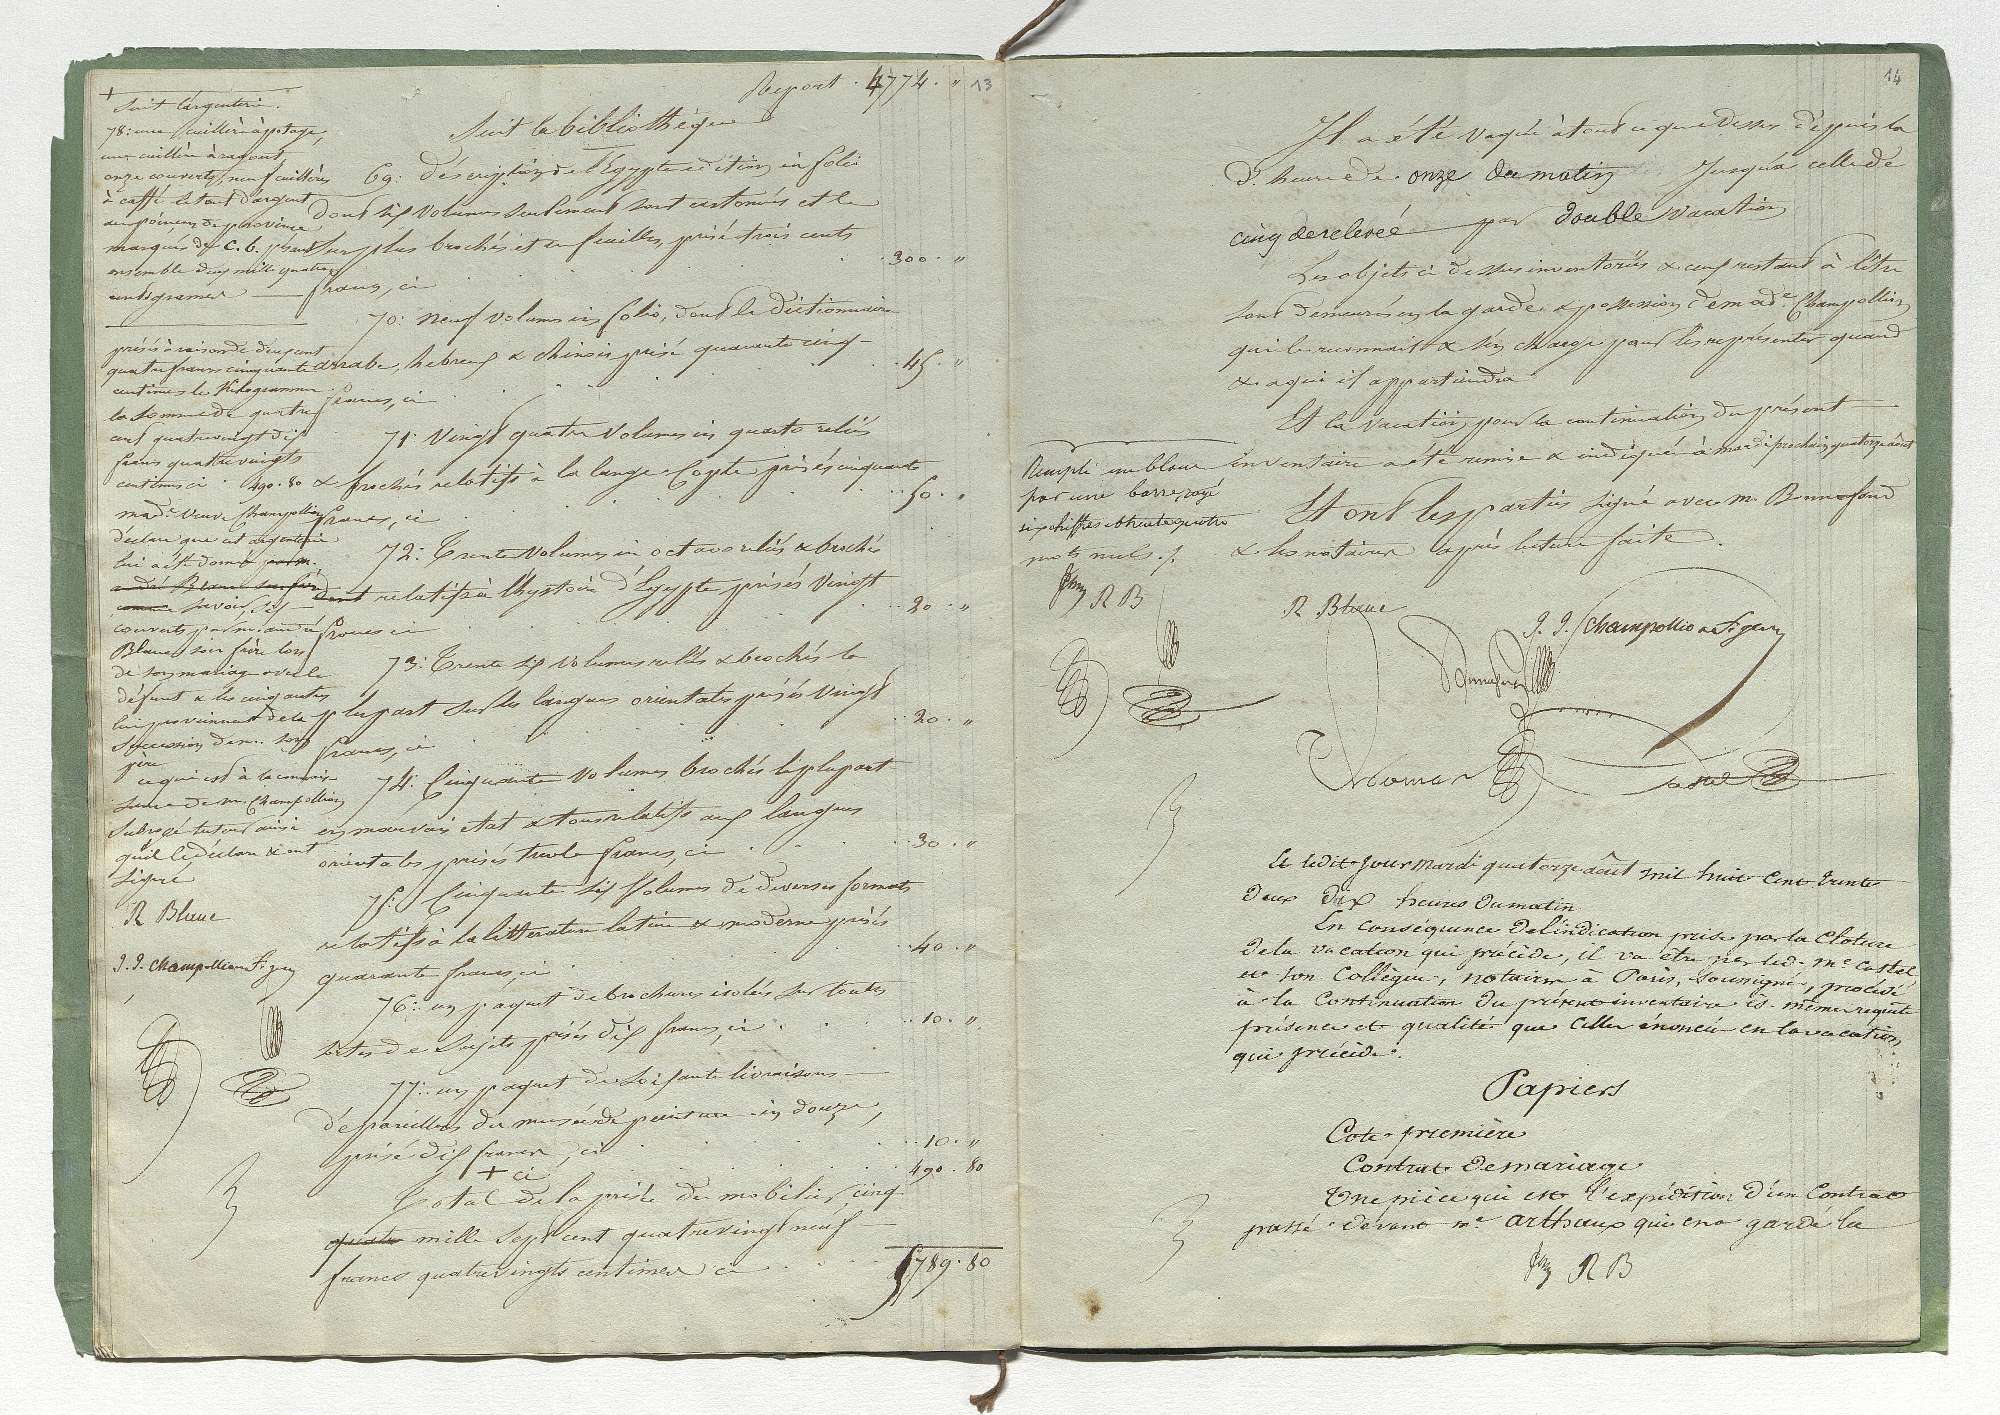 Report . 4774 . " 13
Suit la bibliothèque
69: déscription de l'Egypte édition in folio
dont dix volumes seulement sont cartonnés et le
surplus brochés et en feuilles, prisé trois cents
francs, ci . 300 . "
70: neuf volumes in folio, dont le dictionnaire
arabe, hebreux & chinois prisé quarante cinq
francs, ci . 45 . "
71: Vingt quatre volumes in quarto reliés
& brochés relatifs à la lange Copte prisés cinquante
francs, ci . 50 . "
72: Trente volumes in octavo reliés & brochés
dont relatifs à l'hystoire d'Egypte prisés vingt
francs ci . 20 . "
73: Trente six volumes reliés & brochés la
plupart sur les langues orientales prisés vingt
francs, ci . 20 . "
74: Cinquante volumes brochés la plupart
en mauvais état & tous relatifs aux langues
orientales prisés trente francs, ci . 30 . "
75: Cinquante six volumes de diverses formats
relatifs à la litterature latine & moderne prisés
quarante francs, ci . 40 . "
76: un paquet de brochures isolés sur toutes
sortes de sujets prisés dix francs, ci . 10 . "
77: un paquet de soixante livraisons
dépareillées du musée de peinture in douze,
prisé dix francs, ci . 10 . "
+ ci . 490 . 80
Total de la prisée du mobilier, cinq
quatre mille sept cent quatrevingt neuf
francs quatrevingts centimes ci . 5789 . 80
+
Suit l'argenterie.
78: une cuillère à potage,
une cuillère à ragout
onze couverts, neuf cuillères
à caffé le tout d'argent
au poinçon de province
marqués de C. B. pesant
ensemble deux mille quatre
cents grammes
prisés à raison de deux cent
quatre francs cinquante
centimes le Kilogramme
la somme de quatre
cent quatrevingt dix
francs quatrevingts
centimes ci . 490 . 80
made veuve Champollion
déclare que cet argenterie
lui a été donné par m.
andré Blanc son frère
comme savoir, six
couverts par m. andré
Blanc son frère lors
de son mariage avec le
défunt & les cinq autres
lui proviennent de la
succession de m. son
père
ce qui est à la connais
sance de m. Champollion
subrogé tuteur ainsi
qu'il le déclare & ont
signé
R Blanc
J. J. Champollion Figeac
14
Il a été vaqué à tout ce que dessus depuis la
d. heure de onze du matin Jusqu'à celle de
cinq de relevée par double vacation
Les objets ci dessus inventoriés & ceux restant à l'être
sont demeurés en la garde & possession de made Champollion
qui le reconnait & s'en charge pour les représenter quand
& a qui il appartiendra
Et la vacation pour la continuation du présent
inventaire a été remise & indiquée à mardi prochain quatorze août
Et ont les parties signé avec m. Bonnefond
& les notaires après lecture faite.
Rempli un blanc
par une barre, rayé
six chiffres et trente quatre
mots nuls ./.
R B
R Blanc
J. J. Champollion Figeac
Bonnefond
Castel
Et ledit jour mardi quatorze août mil huit cent trente
deux dix heures du matin
En conséquence de l'indication prise par la cloture
de la vacation qui précède, il va être par led. me Castel
et son collègue, notaires à Paris, soussignés, procédé
à la continuation du présent inventaire ès mêmes requête
présence et qualités que celles énoncées en la vacation
qui précède.
Papiers
Cote première
Contrat de mariage
Une pièce qui est l'expédition d'un contrat
passé devant me arthaux qui en a gardé la
R B